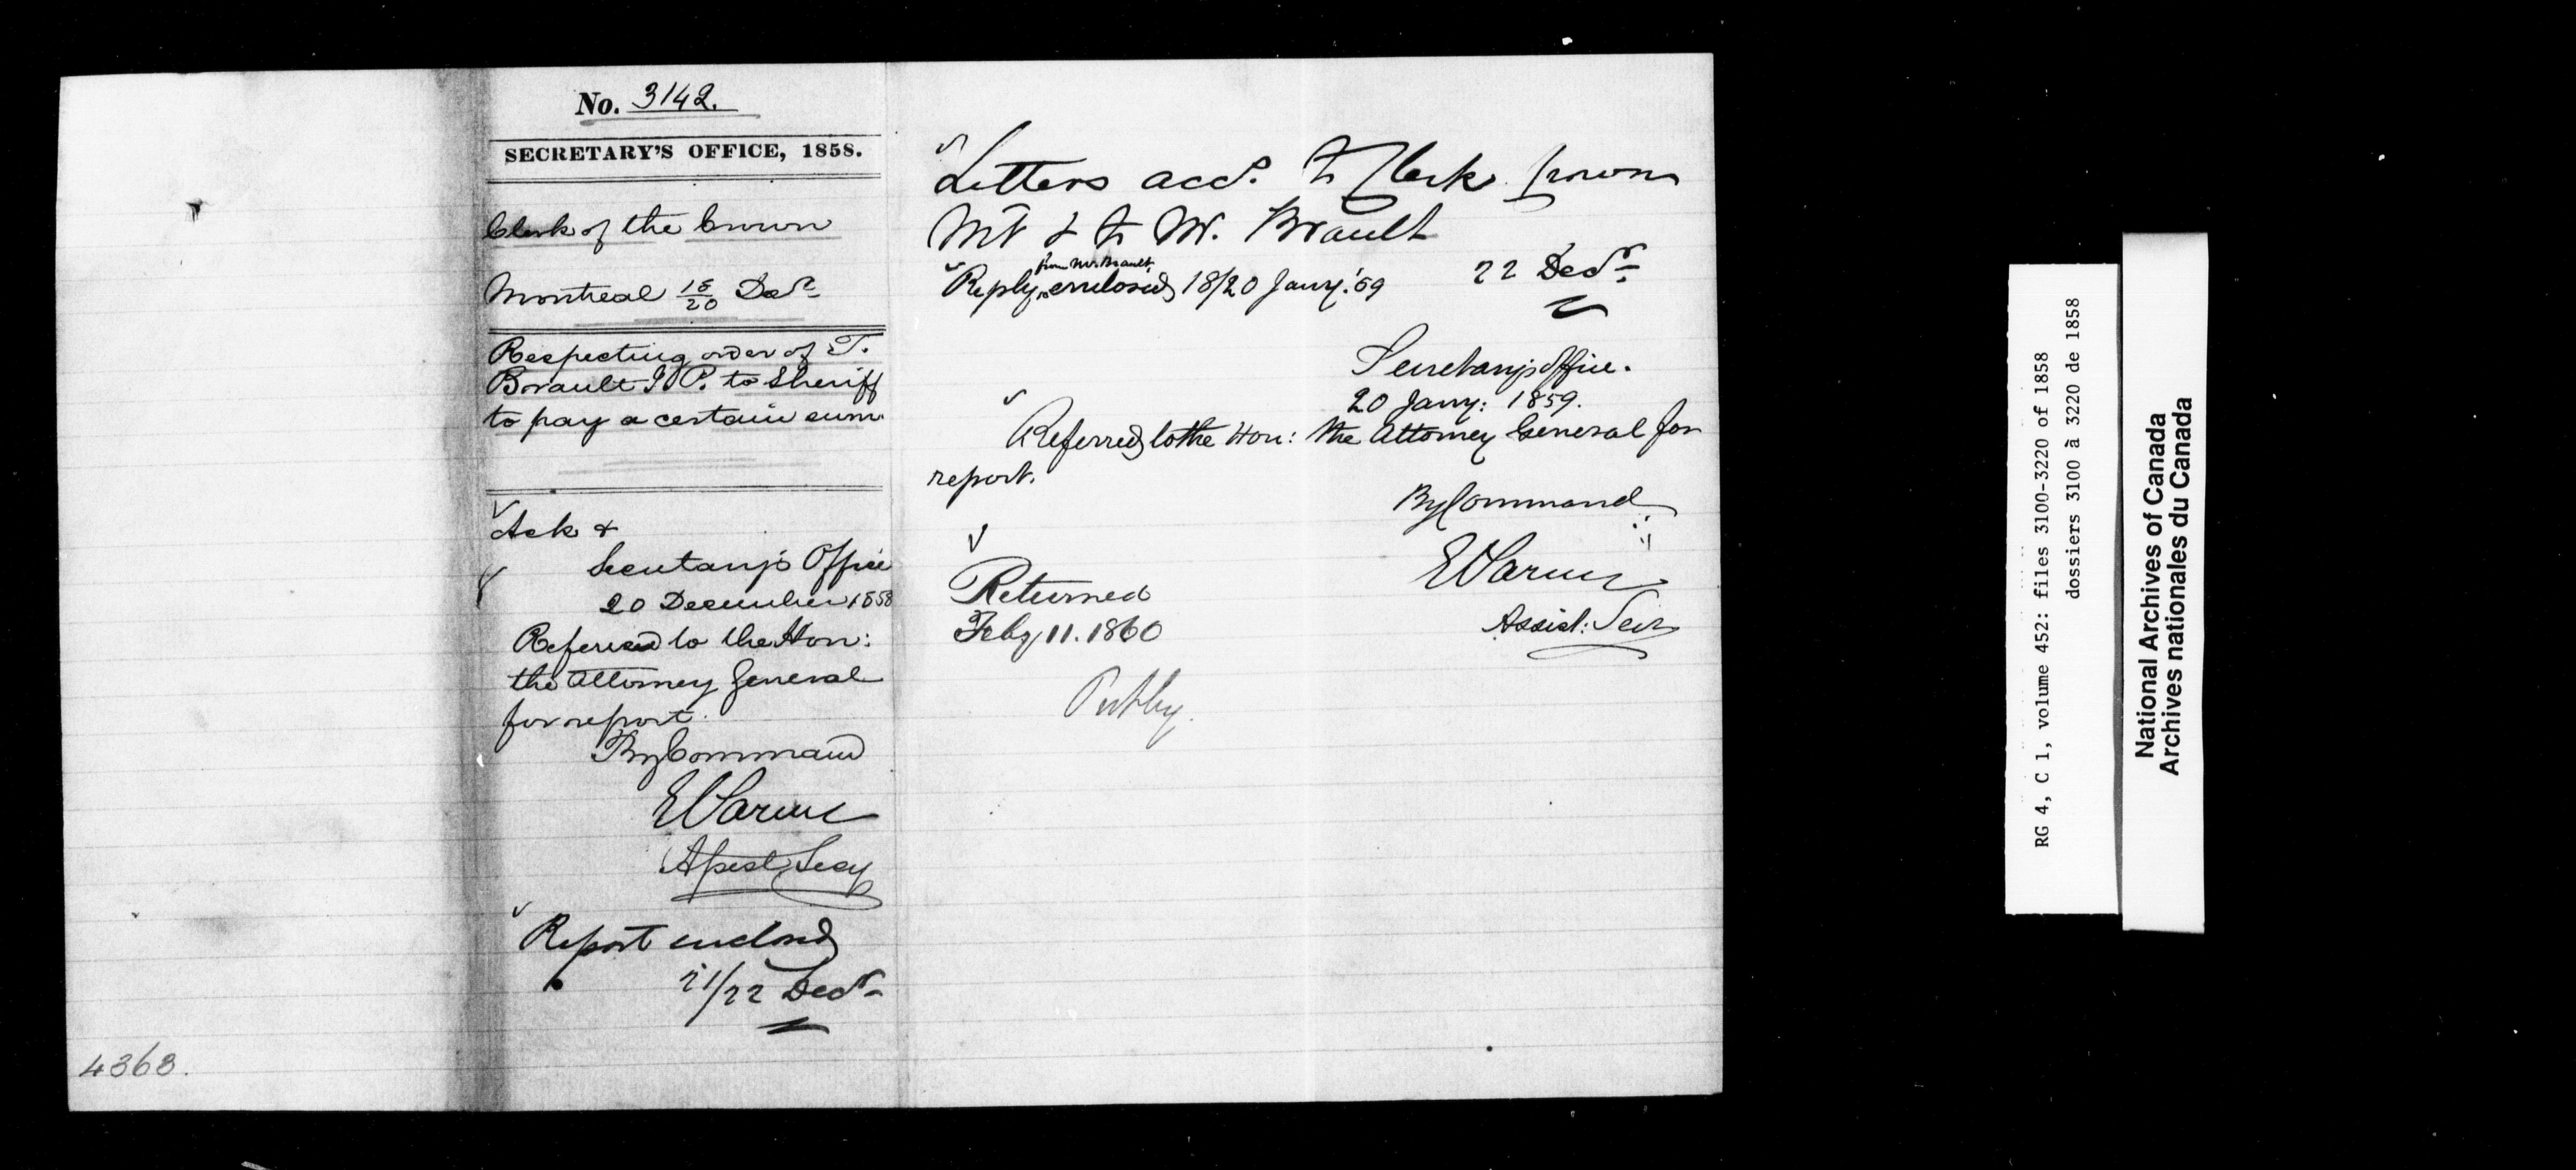 No. 3142.
SECRETARY'S OFFICE, 1858.
Clerk of the Crown
Montreal 18/20 Decr
Respecting order of T.
Brault J. P. to Sheriff
to pay a certain sum
Ack &
Secretary's Office
20 December 1858
Referred to the Hon:
the Attorney General
for report.
By Command
E Parent
Assist Secy
Report enclosed
21/22 Decr
4363.
Letters accd. to Clerk Crown
Mt & to Mr. Brault
22 Decr
from Mr. Brault
Reply enclosed 18/20 Jany. '59
Secretary's Office.
20 Jany: 1859.
Referred to the Hon: the Attorney General for
report.
By Command
E Parent
Assist: Secy
Returned
Feby 11. 1860
Put by.
RG 4, C 1, volume 452: files 3100-3220 of 1858
dossiers 3100 à 3220 de 1858
National Archives of Canada
Archives nationales du Canada